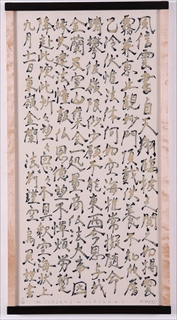 風信雲書自天翔臨披之閲之如掲雲
霧兼恵止観妙門頂戴供養不知攸厝
已冷伏惟法體何如空海推常擬隨命
躋攀彼嶺限以少願不能東西今思与我
金蘭及室山集會一處量商仏法大事因
縁共建法幢報仏恩徳望不憚煩労蹔
降赴此院此所望々忩々不具
九月十一日東嶺金蘭法前謹空